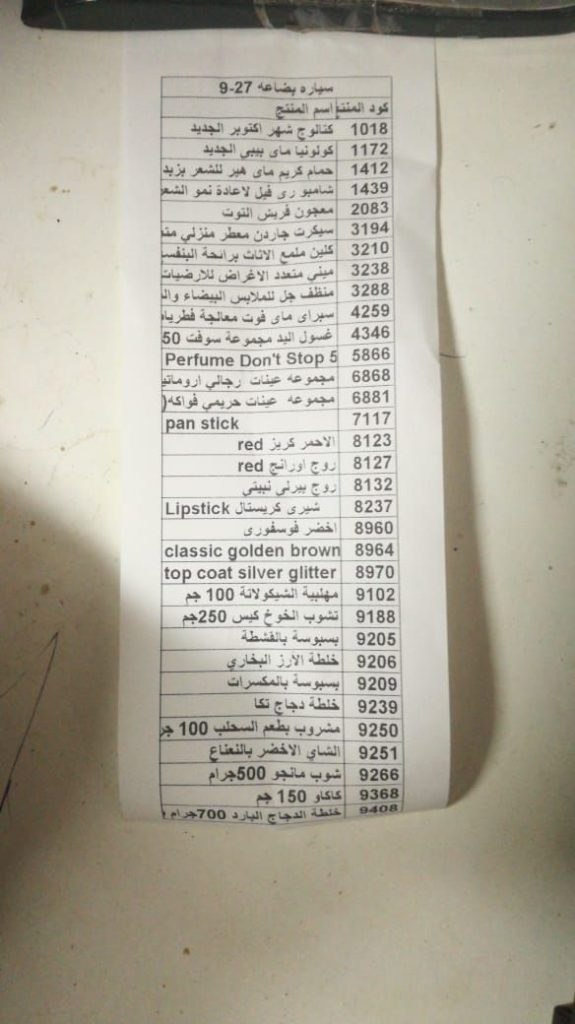 سياره بضاعه 27-9
كود المنتج اسم المنتج
1018 كتالوج شهر اكتوبر الجديد
1172 كولونيا ماى بيبي الجديد
1412 حمام كريم ماى هير للشعر بزبد
1439 شامبو رى فيل لاعادة نمو الشعر
2083 معجون فريش التوت
3194 سيكرت جاردن معطر منزلي منـ
3210 كلين ملمع الاثاث برائحة البنفسـ
3238 ميني متعدد الاغراض للارضيات
3288 منظف جل للملابس البيضاء والـ
4259 سبراى ماى فوت معالجة فطريا
4346 غسول اليد مجموعة سوفت 50
5866 Perfume Don't Stop 5
6868 مجموعه عينات رجالي اروماتيـ
6881 مجموعه عينات حريمي فواكه(
7117 pan stick
8123 الاحمر كريز red
8127 روج اورانج red
8132 روج بيرلى نبيتى
8237 شيرى كريستال Lipstick
8960 اخضر فوسفورى
8964 classic golden brown
8970 top coat silver glitter
9102 مهلبية الشيكولاتة 100 جم
9188 تشوب الخوخ كيس 250جم
9205 بسبوسة بالقشطة
9206 خلطة الارز البخاري
9209 بسبوسة بالمكسرات
9239 خلطة دجاج تكا
9250 مشروب بطعم السحلب 100 جر
9251 الشاي الاخضر بالنعناع
9266 شوب مانجو 500جرام
9368 كاكاو 150 جم
9408 خلطة الدجاج البارد 700جرام